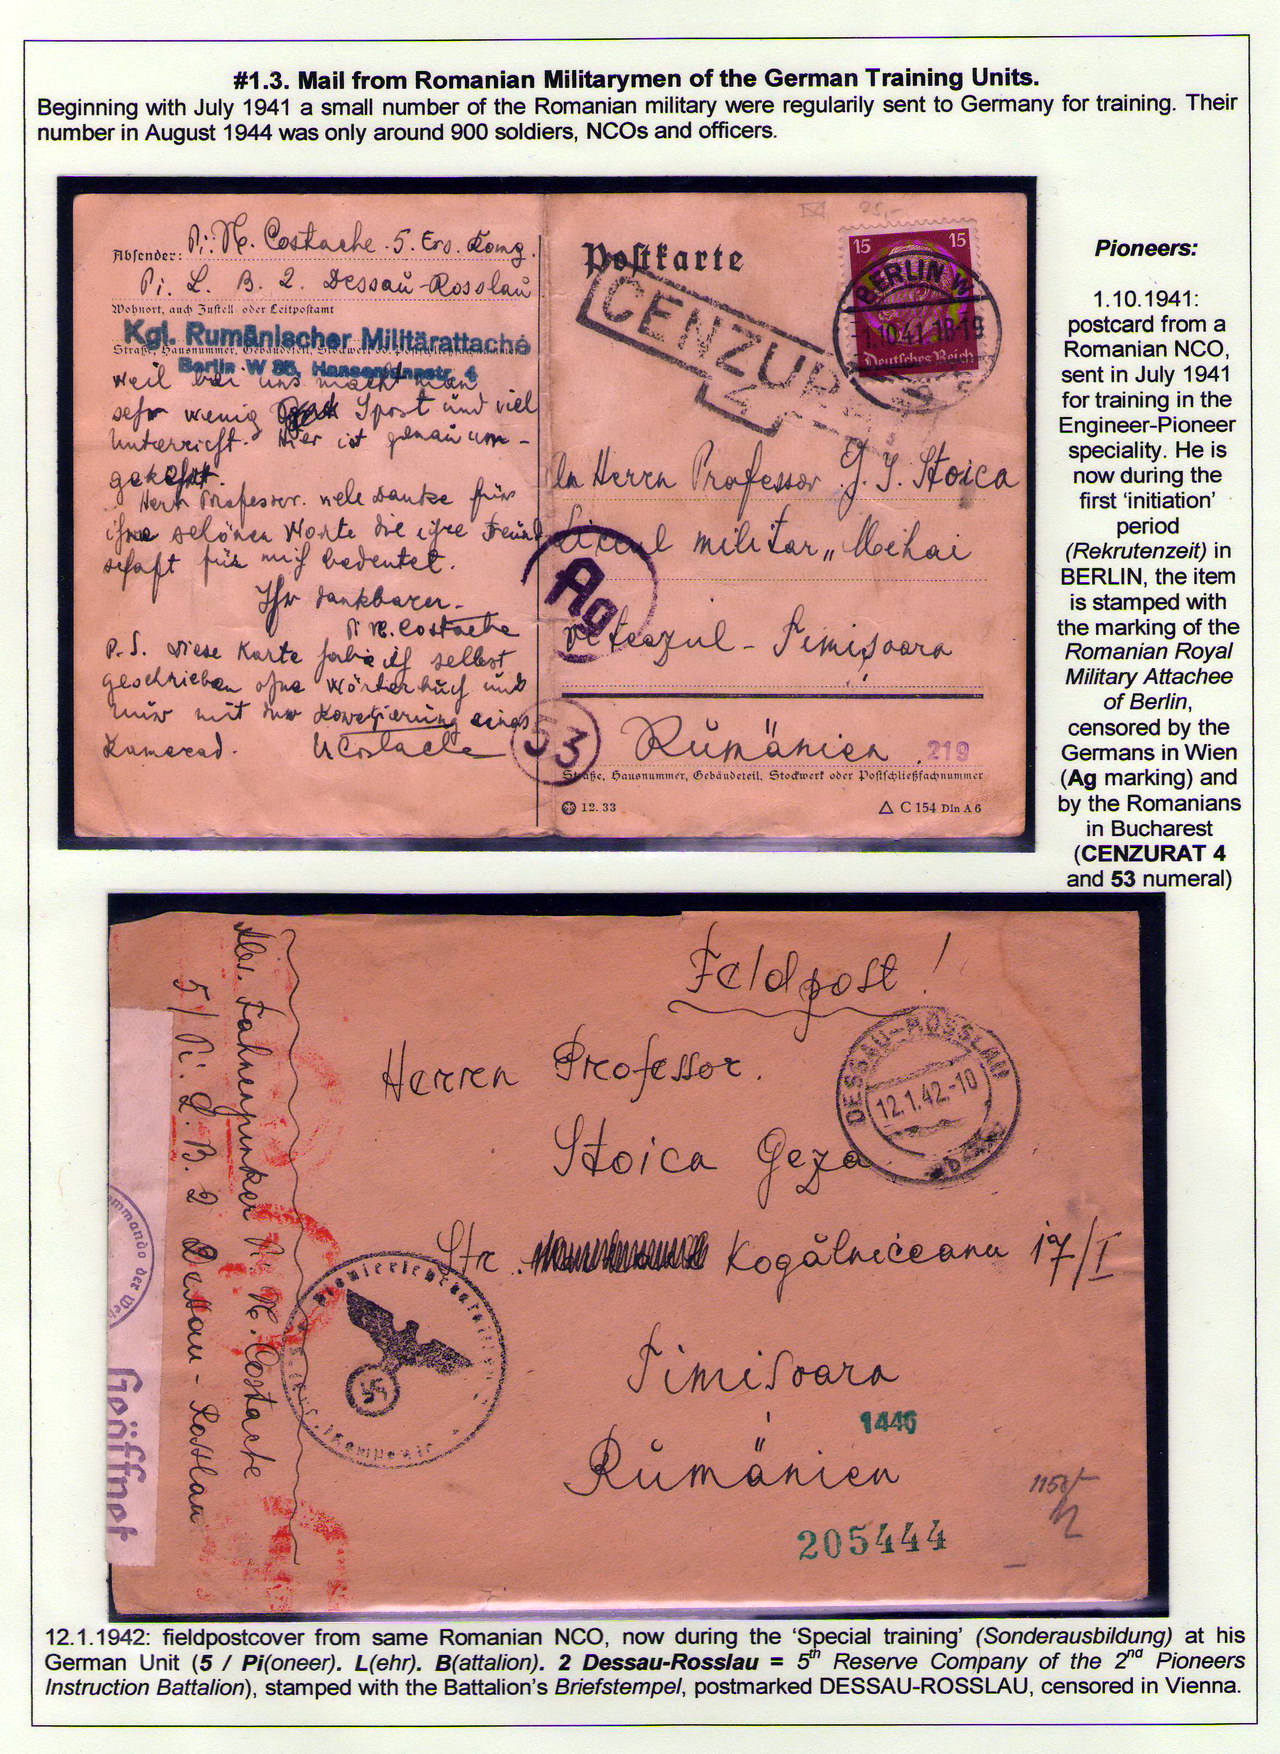 #1.3. Mail from Romanian Militarymen of the German Training Units.
Beginning with July 1941 a small number of the Romanian military were regularily sent to Germany for training. Their
number in August 1944 was only around 900 soldiers, NCOs and officers.
Absender: Pi. N. Costache. 5. Ers. Komp.
Pi. L. B. 2. Dessau-Rosslau
Wohnort, auch Zustell- oder Leitpostamt
Kgl. Rumänischer Militärattaché
Straße, Hausnummer, Gebäudeteil, Stockwerk od. Postschließfachnummer
Berlin W 35, Hansemannstr. 4
weil bei uns macht man
sehr wenig Sport und viel
Unterricht. Hier ist genau um-
gekehrt.
Herr Professor. viele Danke für
ihre schönen Worte die ihre Freund
schaft für mich bedeutet.
Ihr dankbarer-
Pi N. Costache
P.S. diese Karte habe ich selbst
geschrieben ohne Wörterbuch und
nur mit der Korectierung eines
Kamerad. NCostache
Postkarte
15 15
Deutsches Reich
BERLIN W
1.10.41.18-19
CENZURAT
4
An Herrn Professor G. I. Stoica
Liceul militar „Mihai
Viteazul - Timișoara
Rumänien
219
Ag
53
Straße, Hausnummer, Gebäudeteil, Stockwerk oder Postschließfachnummer
12. 33
C 154 Din A 6
Pioneers:
1.10.1941:
postcard from a
Romanian NCO,
sent in July 1941
for training in the
Engineer-Pioneer
speciality. He is
now during the
first ‘initiation’
period
(Rekrutenzeit) in
BERLIN, the item
is stamped with
the marking of the
Romanian Royal
Military Attachee
of Berlin,
censored by the
Germans in Wien
(Ag marking) and
by the Romanians
in Bucharest
(CENZURAT 4
and 53 numeral)
Feldpost!
DESSAU-ROSSLAU
12.1.42.-10
Herren Professor.
Stoica Geza
Str. Kogălniceanu 17/I
Timisoara
1446
Rumänien
205444
1150/-
Abs. Fahnenjunker N. Costache
5/ Pi. L. B. 2 Dessau - Rosslau
Geöffnet
12.1.1942: fieldpostcover from same Romanian NCO, now during the ‘Special training’ (Sonderausbildung) at his
German Unit (5 / Pi(oneer). L(ehr). B(attalion). 2 Dessau-Rosslau = 5th Reserve Company of the 2nd Pioneers
Instruction Battalion), stamped with the Battalion’s Briefstempel, postmarked DESSAU-ROSSLAU, censored in Vienna.